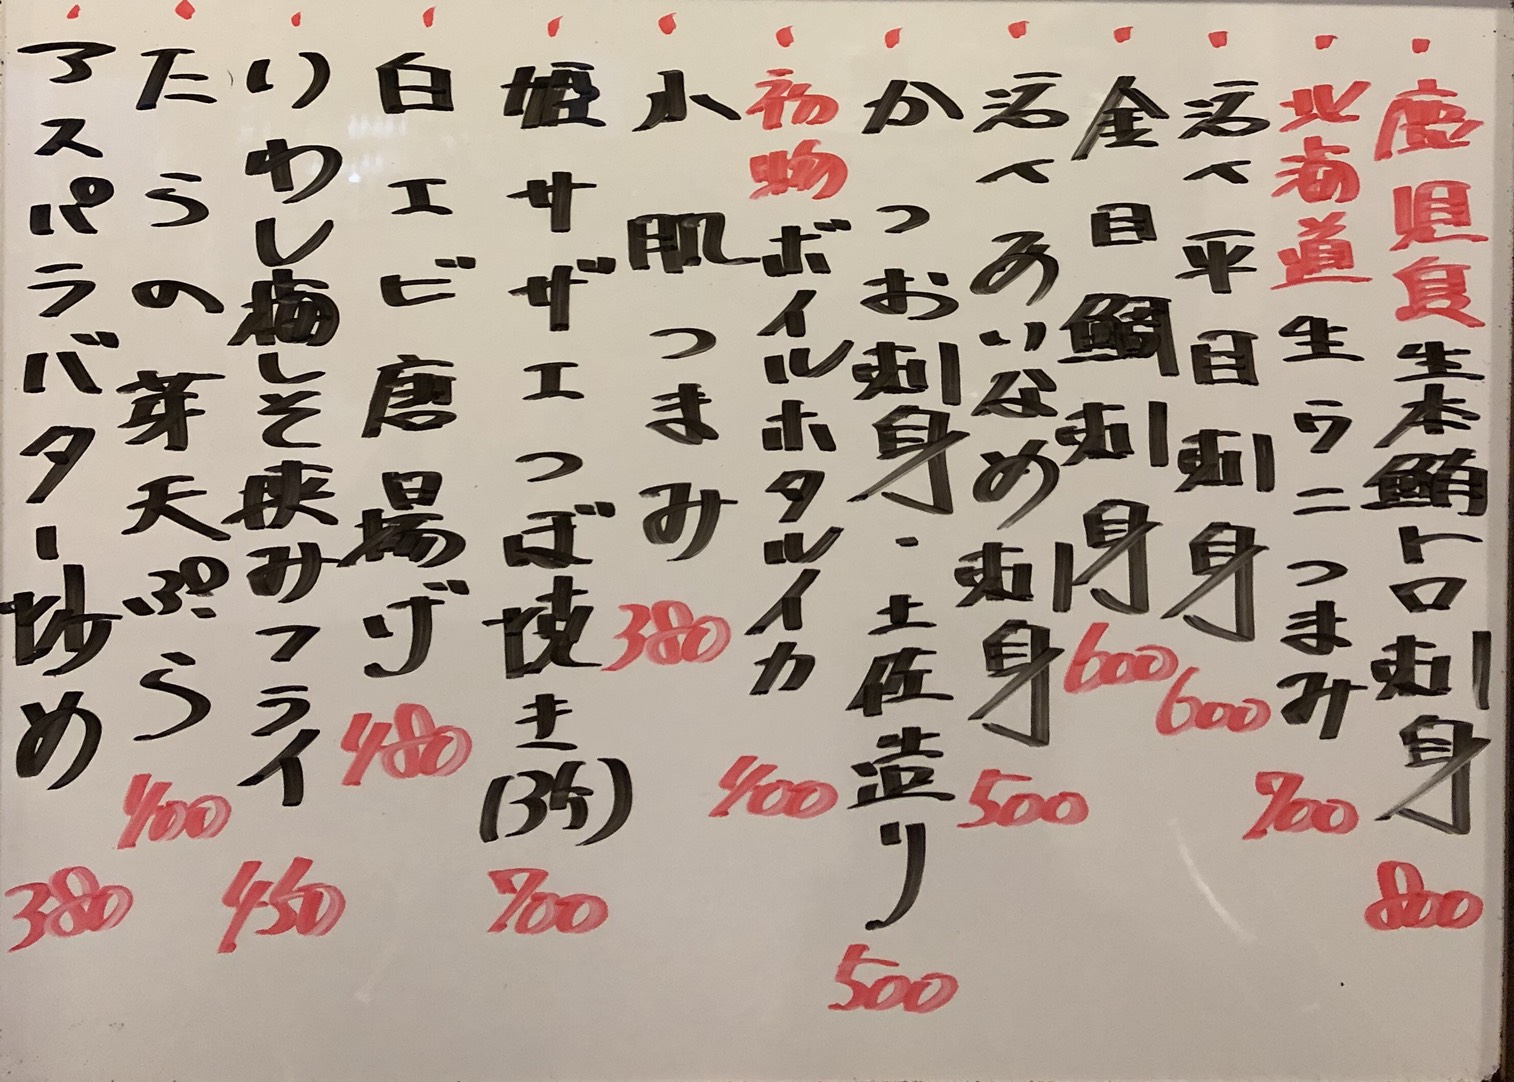 鹿児島生本鮪トロ刺身 800
北海道生ウニつまみ 700
活〆平目刺身 600
金目鯛刺身 600
活〆あいなめ刺身 500
かつお刺身・土佐造り 500
初物ボイルホタルイカ 400
小肌つまみ 380
姫サザエつぼ焼き(3ケ) 700
白エビ唐揚げ 480
いわし梅しそ挟みフライ 450
たらの芽天ぷら 400
アスパラバター炒め 380